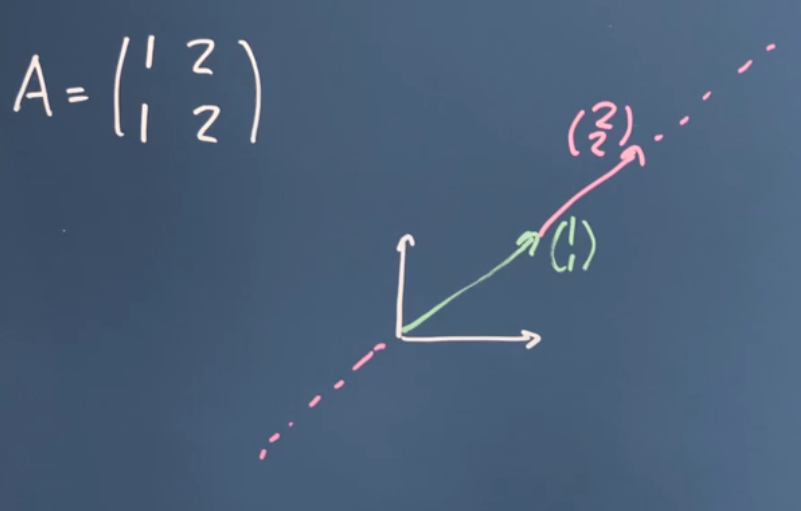 A = (1 2
1 2)
(2
2)
(1
1)